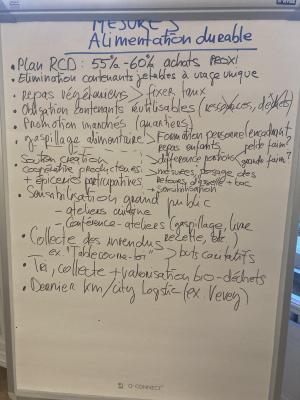 MESURES
Alimentation durable
• Plan RCD : 55% - 60% achats PROXI
• Elimination contenants jetables à usage unique
• Repas végétariens > fixer taux
• Obligation contenants réutilisables (ressources, déchets)
• Promotion marchés (quartiers)
• gaspillage alimentaire > Formation personnel encadrant
repas enfants petite faim?
• Soutien création > différence portions grande faim?
coopérative producteurs
+ épiceries participatives
> sensibilisation
• Sensibilisation grand public
- ateliers cuisine
- Conférence-ateliers (gaspillage, livre
recette, etc.)
• Collecte des invendus
ex. "Table couvre-toi" > buts caritatifs
• Tri, collecte + valorisation bio-déchets
• Dernier km/city logistic (ex. Vevey)
Q-CONNECT